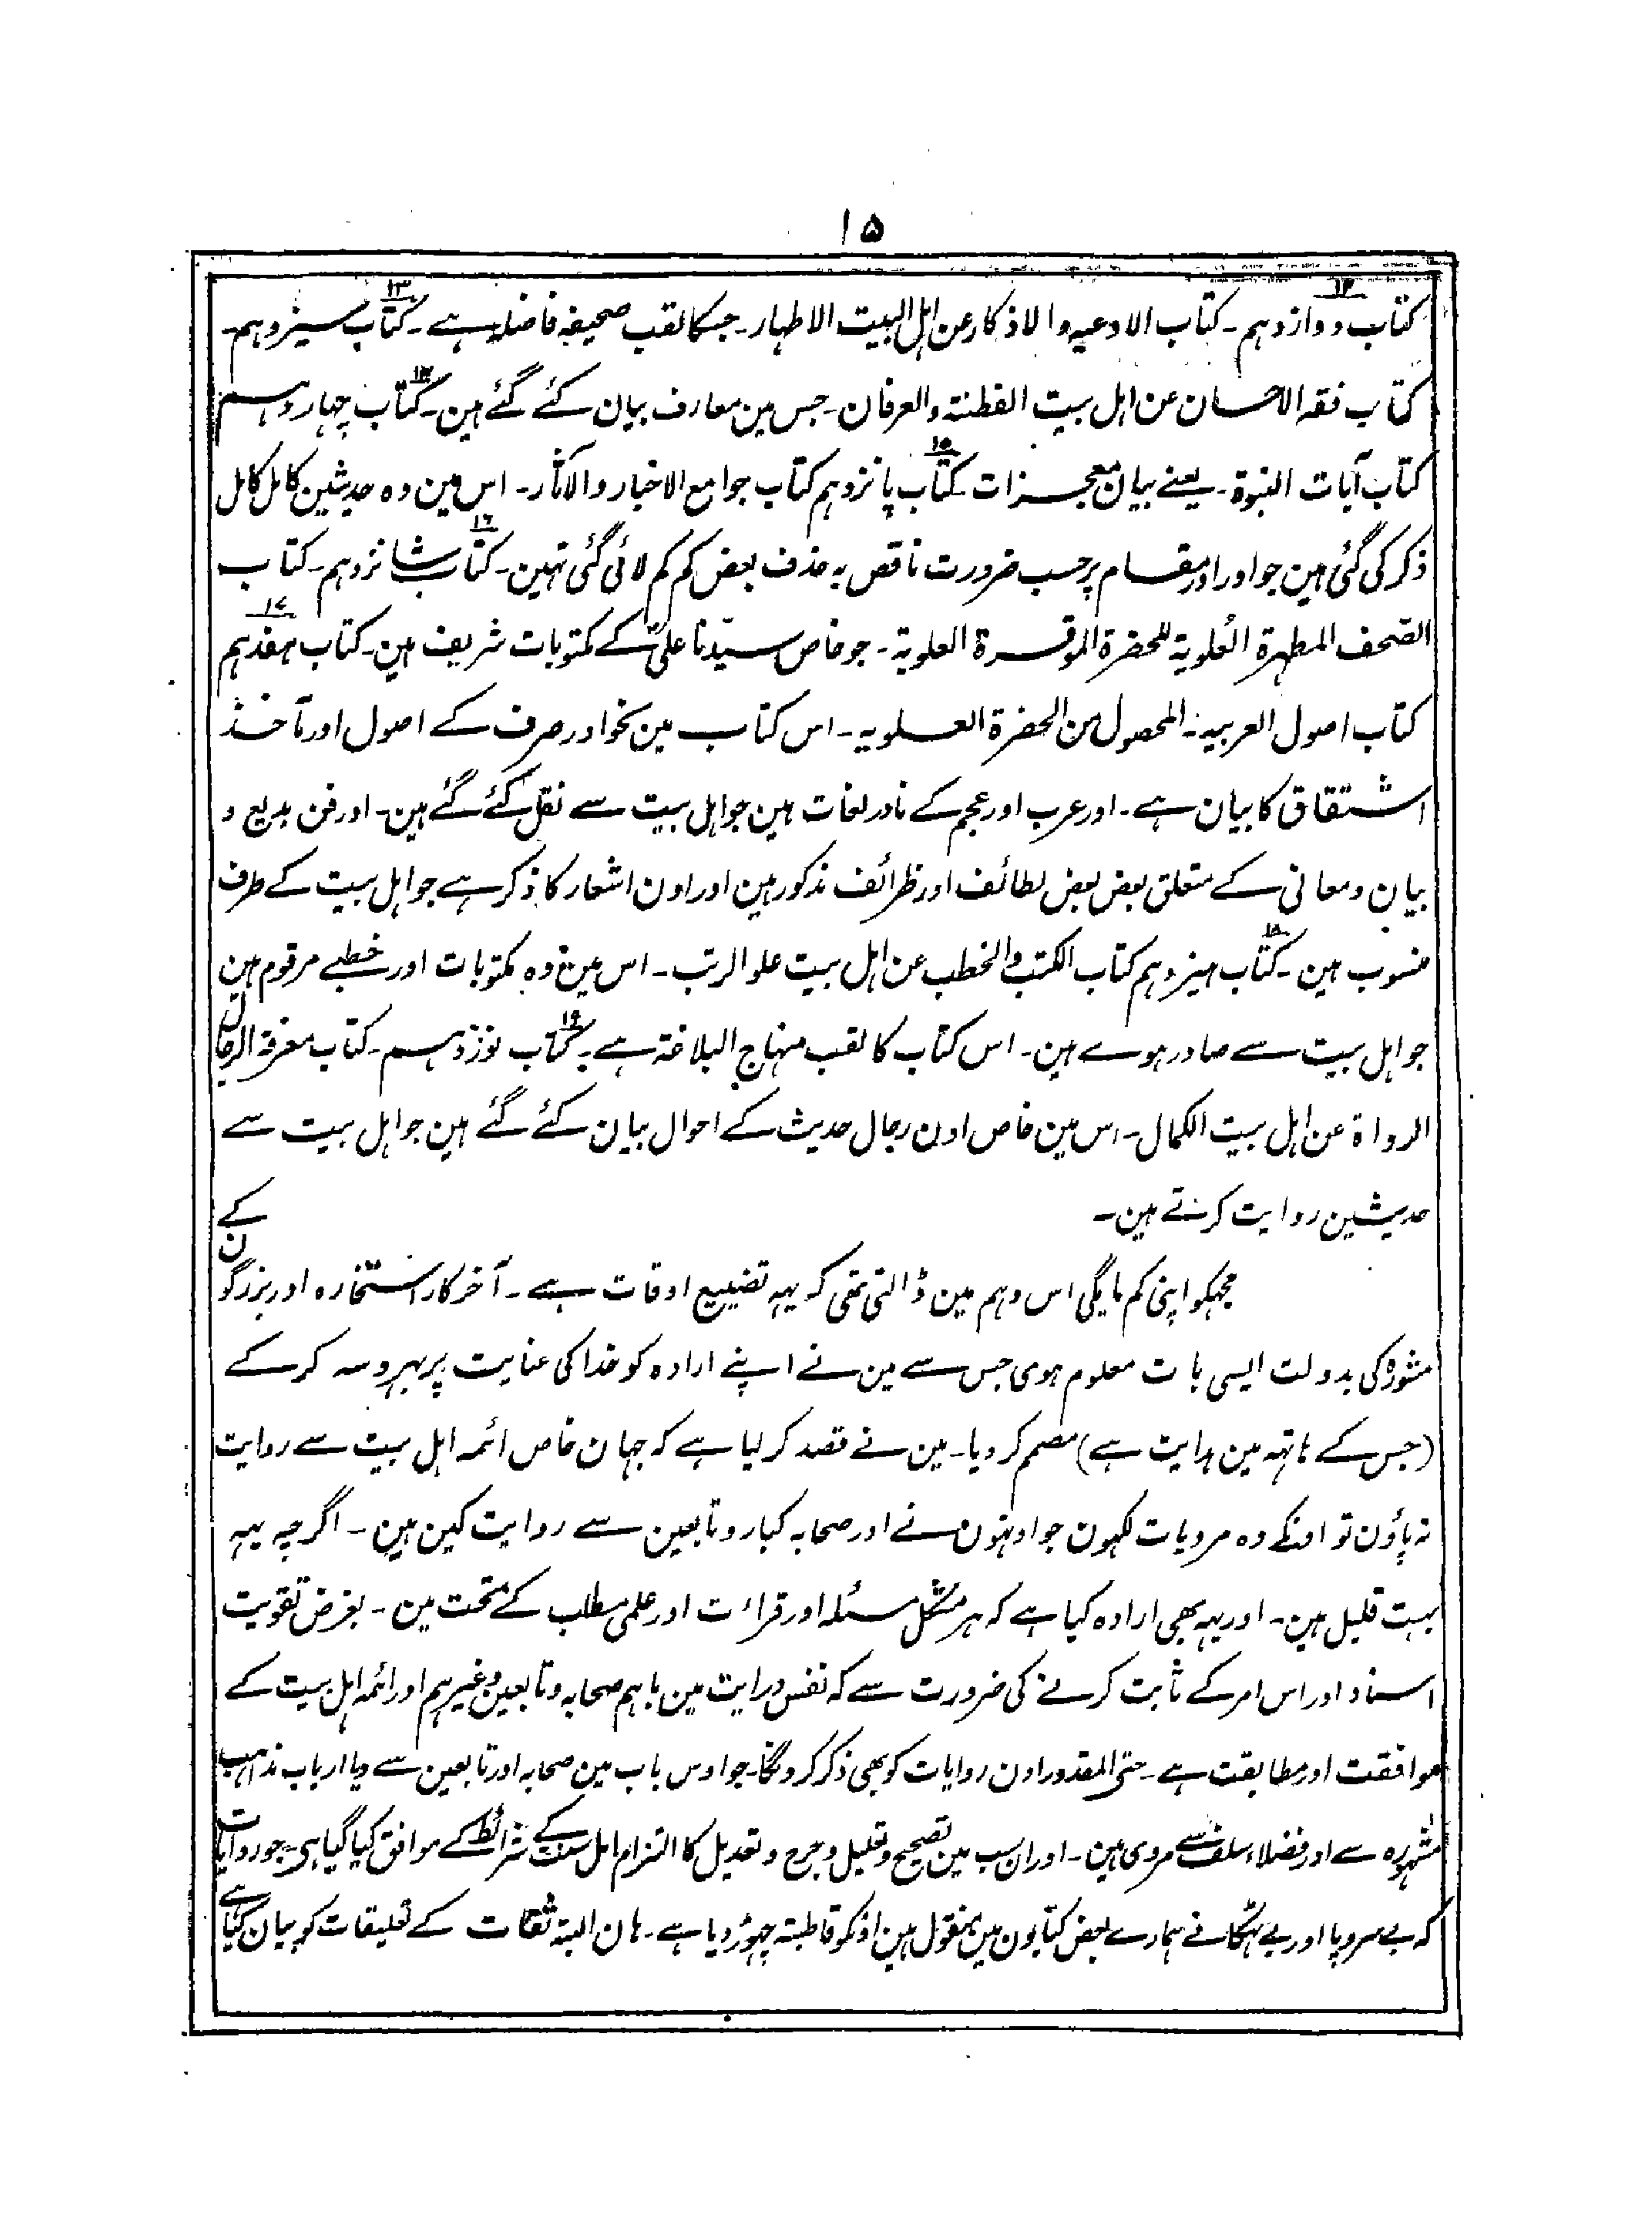 ۱۵
کتاب دوازدہم۔ کتاب الادعیہ والاذکار عن اہل البیت الاطہار۔ جسکا لقب صحیفہ فاضلہ ہے۔ کتاب سیزدہم۔
کتاب فقہ الاحسان عن اہل بیت الفطنۃ والعرفان۔ جس مین معارف بیان کئے گئے ہین۔ کتاب چہاردہم
کتاب آیات النبوۃ۔ یعنے بیان معجزات۔ کتاب پانزدہم کتاب جوامع الاخبار والآثار۔ اس مین وہ حدیثین کامل کامل
ذکر کی گئی ہین جو اور اور مقام پر حسب ضرورت ناقص بہ حذف بعض کم کم لائی گئی تہین۔ کتاب شانزدہم۔ کتاب
الصحف المطہرۃ العلویۃ للحضرۃ الموقرۃ العلویۃ۔ جو خاص سیدنا علیؑ کے مکتوبات شریف ہین۔ کتاب ہفدہم
کتاب اصول العربیہ۔ المحصول من الحضرۃ العلویہ۔ اس کتاب مین نحو اور صرف کے اصول اور مآخذ
اشتقاق کا بیان ہے۔ اور عرب اور عجم کے نادر لغات ہین جو اہل بیت سے نقل کئے گئے ہین۔ اور فن بدیع و
بیان و معانی کے متعلق بعض بعض لطائف اور ظرائف مذکور ہین اور اون اشعار کا ذکر ہے جو اہل بیت کے طرف
منسوب ہین۔ کتاب ہیزدہم کتاب الکتب والخطب عن اہل بیت علو الرتب۔ اس مین وہ مکتوبات اور خطبے مرقوم ہین
جو اہل بیت سے صادر ہوے ہین۔ اس کتاب کا لقب منہاج البلاغۃ ہے۔ کتاب نوزدہم۔ کتاب معرفۃ الرجال
الرواۃ عن اہل بیت الکمال۔ اس مین خاص اون رجال حدیث کے احوال بیان کئے گئے ہین جو اہل بیت سے
حدیثین روایت کرتے ہین۔
مجہکو اپنی کم مایگی اس وہم مین ڈالتی تہی کہ یہہ تضییع اوقات ہے۔ آخر کار استخارہ اور بزرگون کے
مشورہ کی بدولت ایسی بات معلوم ہوی جس سے مین نے اپنے ارادہ کو خدا کی عنایت پر بہروسہ کر کے
(جس کے ہاتہہ مین ہدایت ہے) مصمم کر دیا۔ مین نے قصد کر لیا ہے کہ جہان خاص ائمہ اہل بیت سے روایت
نہ پاؤن تو اونکے وہ مرویات لکہون جو اونہون نے اور صحابہ کبار و تابعین سے روایت کین ہین۔ اگرچہ یہہ
بہت قلیل ہین۔ اور یہہ بھی ارادہ کیا ہے کہ ہر مشکل مسئلہ اور قراءت اور علمی مطلب کے تحت مین۔ بغرض تقویت
اسناد اور اس امر کے ثابت کرنے کی ضرورت سے کہ نفس درایت مین باہم صحابہ و تابعین وغیرہم اور ائمہ اہل بیت کے
موافقت اور مطابقت ہے۔ حتی المقدور اون روایات کو بھی ذکر کرونگا۔ جو اوس باب مین صحابہ اور تابعین سے ویا ارباب مذاہب
مشہورہ سے اور فضلاء سلف سے مروی ہین۔ اور ان سب مین تصحیح و تعلیل و جرح و تعدیل کا التزام اہل سنت کے شرائط کے موافق کیا گیا ہی۔ جو روایات
کہ بے سر و پا اور بے ٹہکانے ہمارے بعض کتابون مین منقول ہین اونکو قاطبتہ چہوڑ دیا ہے۔ ہان البتہ ثقات کے تعلیقات کو بیان کیا ہے